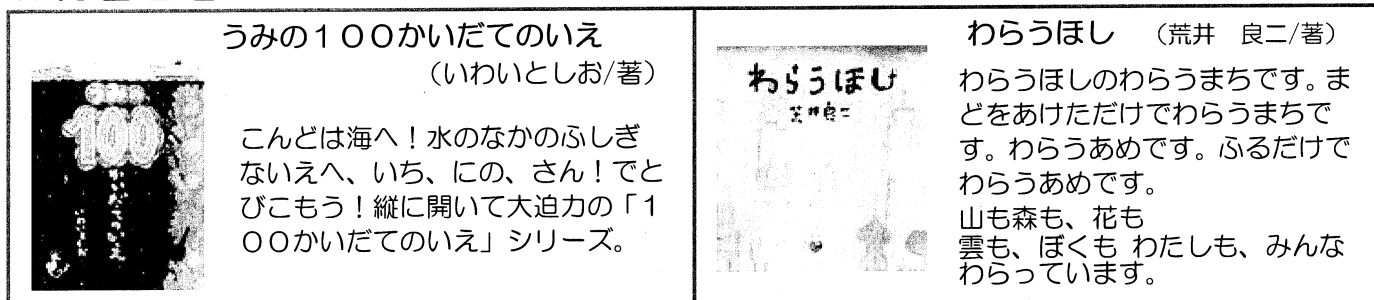 うみの１００かいだてのいえ
（いわいとしお/著）
100
こんどは海へ！水のなかのふしぎ
ないえへ、いち、にの、さん！でと
びこもう！縦に開いて大迫力の「１
００かいだてのいえ」シリーズ。
わらうほし　（荒井　良二/著）
わらうほし
荒井良二
わらうほしのわらうまちです。ま
どをあけただけでわらうまちで
す。わらうあめです。ふるだけで
わらうあめです。
山も森も、花も
雲も、ぼくも わたしも、みんな
わらっています。